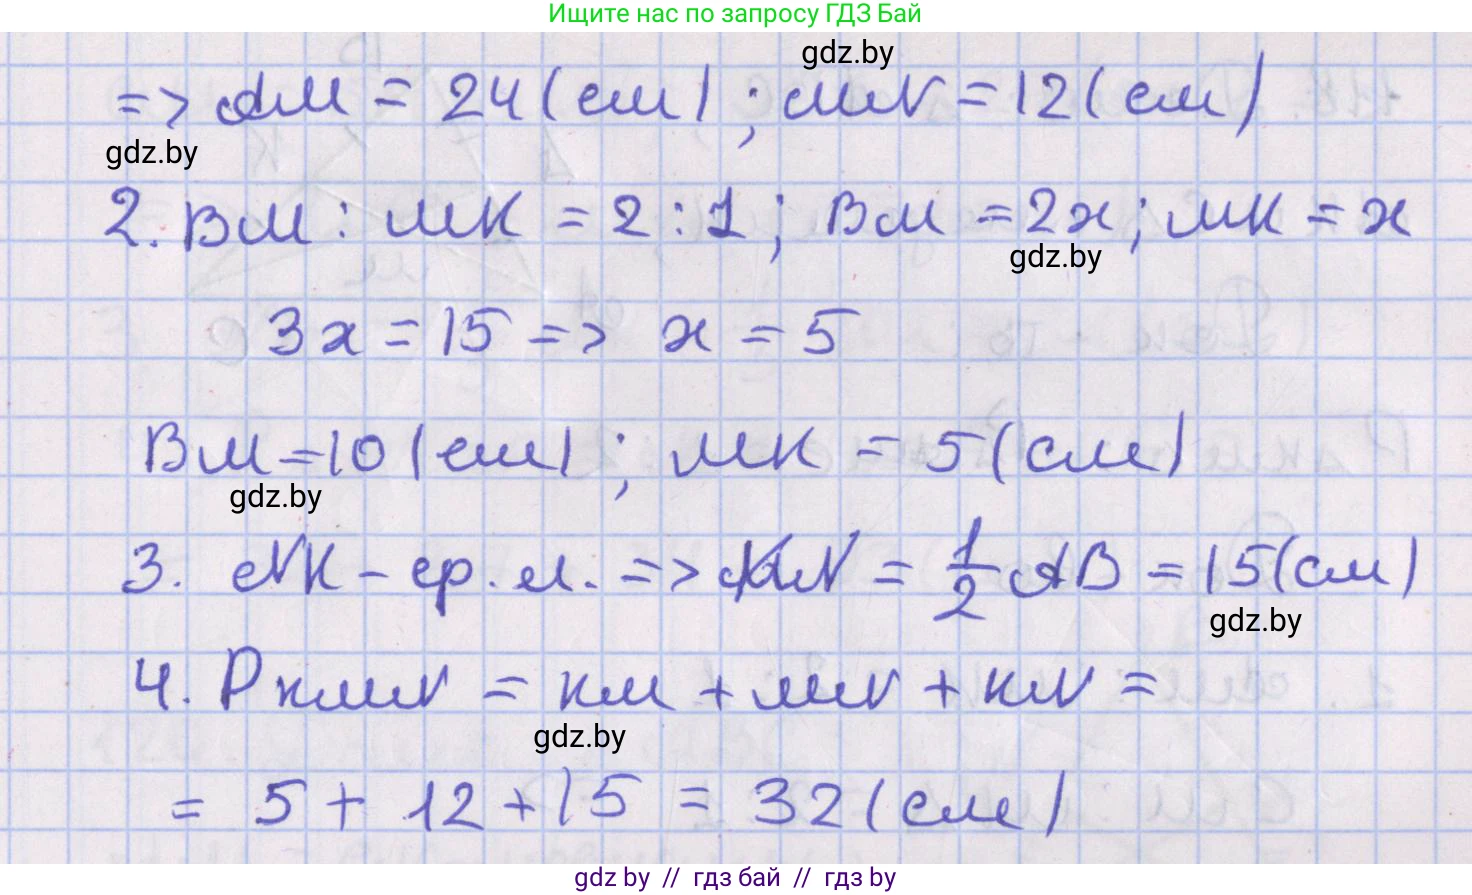 Ищите нас по запросу ГДЗ Бай
gdz.by
=> AM = 24 (см) ; MN = 12 (см)
gdz.by
2. BM : MK = 2 : 1 ; BM = 2x ; MK = x
gdz.by
3x = 15 => x = 5
BM = 10 (см) ; MK = 5 (см)
gdz.by
3. NK - ср. л. => KN = 1/2 AB = 15 (см)
gdz.by
4. P KMN = KM + MN + KN =
gdz.by
= 5 + 12 + 15 = 32 (см)
gdz by // гдз бай // гдз by